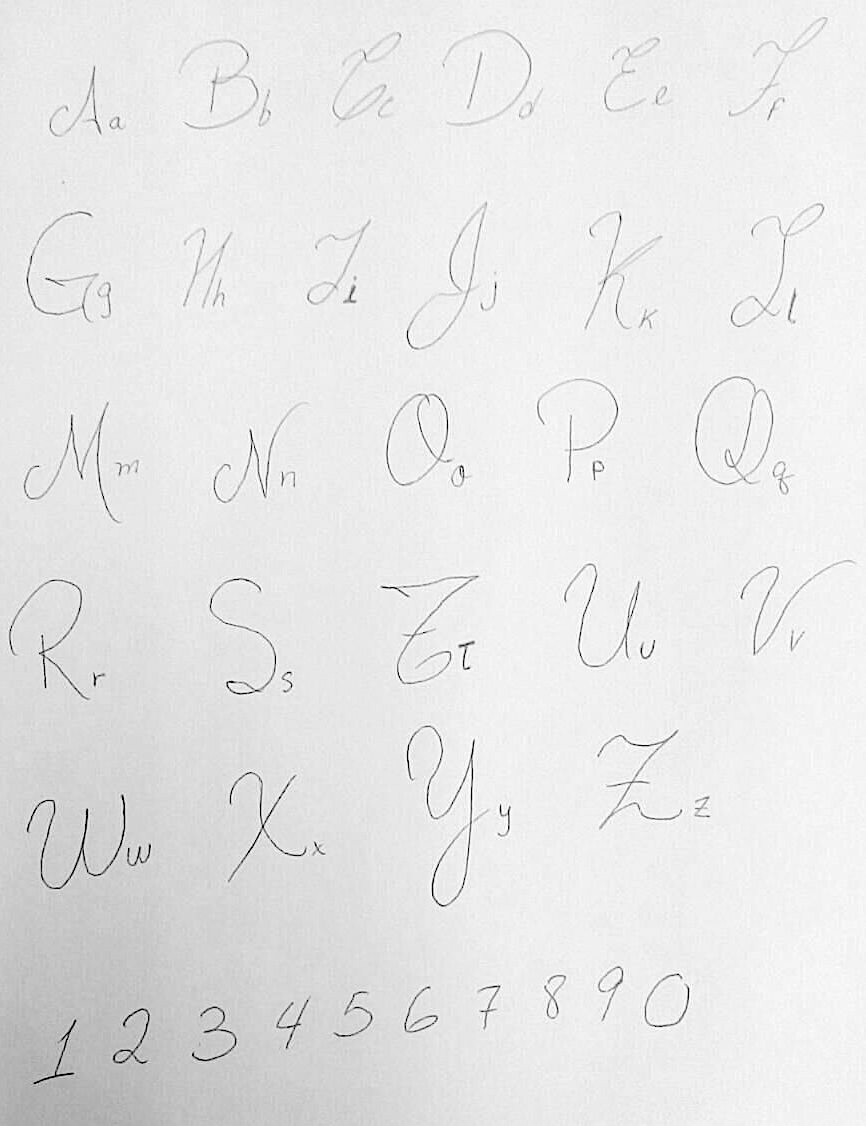 Aa Bb Cc Dd Ee Ff
Gg Hh Ii Jj Kk Ll
Mm Nn Oo Pp Qq
Rr Ss Tt Uu Vv
Ww Xx Yy Zz
1 2 3 4 5 6 7 8 9 0